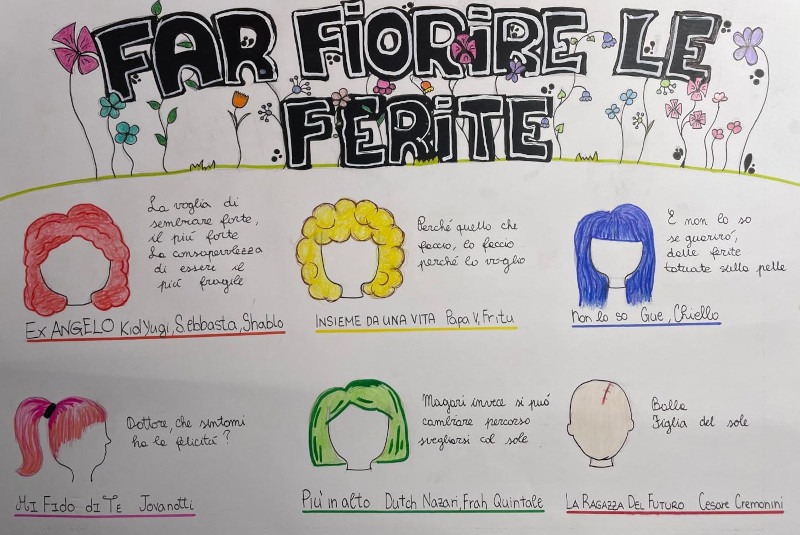 FAR FIORIRE LE
FERITE
La voglia di
sembrare forte,
il più forte
La consapevolezza
di essere il
più fragile
EX ANGELO Kid Yugi, S.ebbasta, Shablo
Perché quello che
faccio, lo faccio
perché lo voglio
INSIEME DA UNA VITA Papa V, Fritu
E non lo so
se guarirò,
dalle ferite
tatuate sulla pelle
Non lo so Gue, Chiello
Dottore, che sintomi
ha la felicità?
MI FIDO di TE Jovanotti
Magari invece si può
cambiare percorso
svegliarsi col sole
Più in alto Dutch Nazari, Frah Quintale
Balla
Figlia del sole
LA RAGAZZA DEL FUTURO Cesare Cremonini